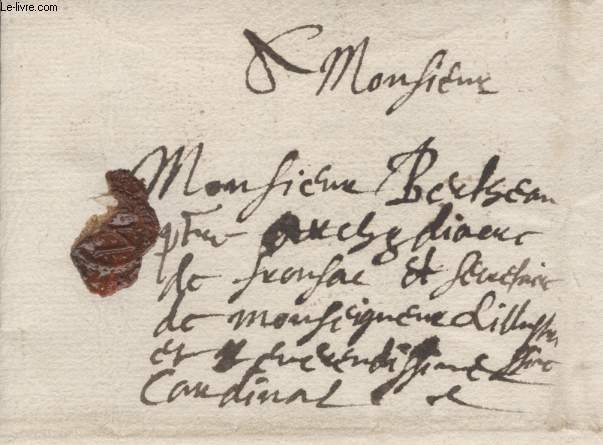 Le-livre.com
A Monsieur
Monsieur Bertheau
pbre Archydiacre
de fronsac et secretaire
de monseigneur Lillustri
et Reverendissime
Cardinal